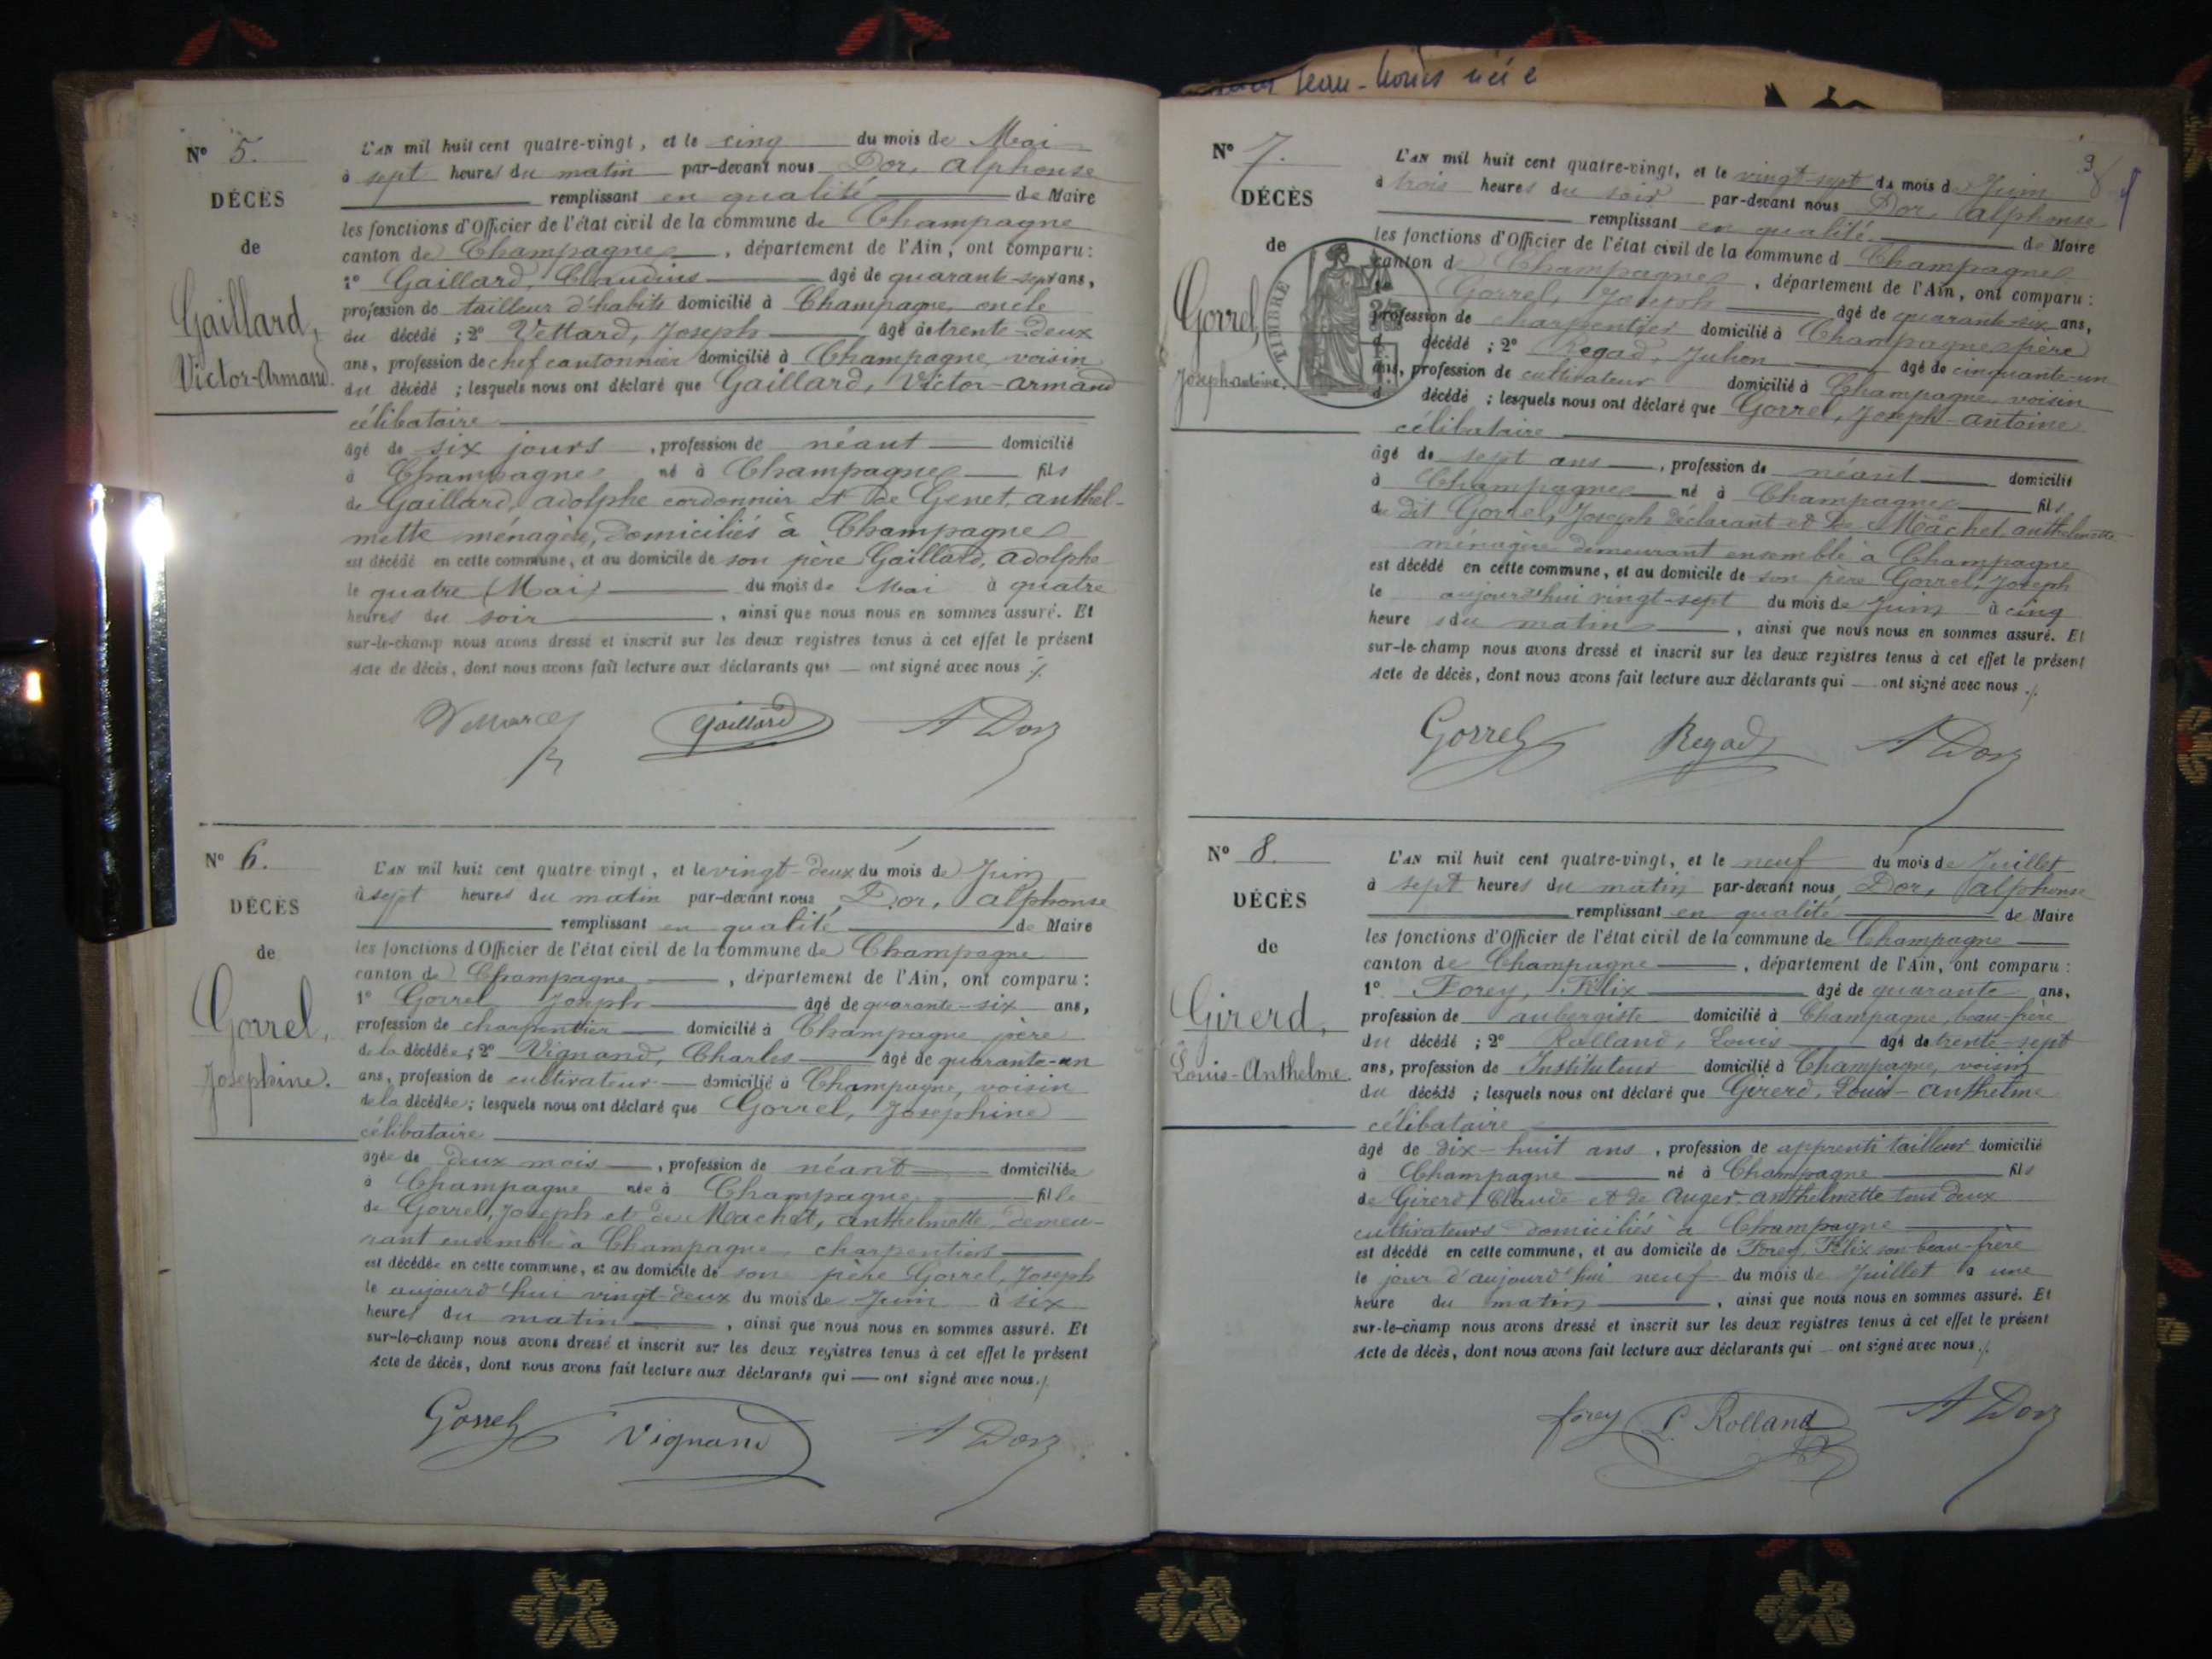 Jean-Louis né e
N° 5.
DÉCÈS
de
Gaillard,
Victor-Armand.
L'AN mil huit cent quatre-vingt, et le cinq du mois de Mai
à sept heures du matin par-devant nous Dor, Alphonse
remplissant en qualité de Maire
les fonctions d'Officier de l'état civil de la commune de Champagne
canton de Champagne, département de l'Ain, ont comparu :
1° Gaillard, Claudius âgé de quarante-sept ans,
profession de tailleur d'habits domicilié à Champagne, oncle
du décédé ; 2° Vettard, Joseph âgé de trente-deux
ans, profession de chef cantonnier domicilié à Champagne, voisin
du décédé ; lesquels nous ont déclaré que Gaillard, Victor-armand
célibataire
âgé de six jours, profession de néant domicilié
à Champagne né à Champagne fils
de Gaillard, adolphe cordonnier et de Genet, anthel-
mette ménagère, domiciliés à Champagne
est décédé en cette commune, et au domicile de son père Gaillard, adolphe
le quatre (Mai) du mois de Mai à quatre
heures du soir, ainsi que nous nous en sommes assuré. Et
sur-le-champ nous avons dressé et inscrit sur les deux registres tenus à cet effet le présent
Acte de décès, dont nous avons fait lecture aux déclarants qui — ont signé avec nous ./.
Vettard Gaillard A Dor
N° 6.
DÉCÈS
de
Gorrel,
Josephine.
L'AN mil huit cent quatre vingt, et le vingt-deux du mois de Juin
à sept heures du matin par-devant nous Dor, Alphonse
remplissant en qualité de Maire
les fonctions d'Officier de l'état civil de la commune de Champagne
canton de Champagne, département de l'Ain, ont comparu :
1° Gorrel, Joseph âgé de quarante-six ans,
profession de charpentier domicilié à Champagne père
de la décédée ; 2° Vignand, Charles âgé de quarante-un
ans, profession de cultivateur domicilié à Champagne, voisin
de la décédée ; lesquels nous ont déclaré que Gorrel, Josephine
célibataire
âgée de deux mois, profession de néant domiciliée
à Champagne née à Champagne fille
de Gorrel, Joseph et de Machet, anthelmette, demeu-
rant ensemble à Champagne charpentiers
est décédée en cette commune, et au domicile de son père Gorrel, Joseph
le aujourd'hui vingt-deux du mois de Juin à six
heures du matin, ainsi que nous nous en sommes assuré. Et
sur-le-champ nous avons dressé et inscrit sur les deux registres tenus à cet effet le présent
Acte de décès, dont nous avons fait lecture aux déclarants qui — ont signé avec nous ./.
Gorrel Vignand A Dor
N° 7.
DÉCÈS
de
Gorrel,
Joseph antoine.
TIMBRE
L'AN mil huit cent quatre-vingt, et le vingt-sept du mois de Juin
à trois heures du soir par-devant nous Dor, Alphonse
remplissant en qualité de Maire
les fonctions d'Officier de l'état civil de la commune d Champagne
canton de Champagne, département de l'Ain, ont comparu :
Gorrel, Joseph âgé de quarante-six ans,
profession de charpentier domicilié à Champagne père
d décédé ; 2° Regad, Juhon âgé de cinquante-un
ans, profession de cultivateur domicilié à Champagne, voisin
d décédé ; lesquels nous ont déclaré que Gorrel, Joseph-antoine
célibataire
âgé de sept ans, profession de néant domicilié
à Champagne né à Champagne fils
de dit Gorrel, Joseph déclarant et de Mâchet anthelmette
ménagère demeurant ensemble à Champagne
est décédé en cette commune, et au domicile de son père Gorrel, Joseph
le aujourd'hui vingt-sept du mois de Juin à cinq
heures du matin, ainsi que nous nous en sommes assuré. Et
sur-le-champ nous avons dressé et inscrit sur les deux registres tenus à cet effet le présent
Acte de décès, dont nous avons fait lecture aux déclarants qui — ont signé avec nous ./.
Gorrel Regad A Dor
N° 8.
DÉCÈS
de
Girerd,
Louis-Anthelme.
L'AN mil huit cent quatre-vingt, et le neuf du mois de Juillet
à sept heures du matin par-devant nous Dor, Alphonse
remplissant en qualité de Maire
les fonctions d'Officier de l'état civil de la commune de Champagne
canton de Champagne, département de l'Ain, ont comparu :
1° Forey, Félix âgé de quarante ans,
profession de aubergiste domicilié à Champagne, beau-frère
du décédé ; 2° Rolland, Louis âgé de trente-sept
ans, profession de Instituteur domicilié à Champagne, voisin
du décédé ; lesquels nous ont déclaré que Girerd, Louis-anthelme
célibataire
âgé de dix-huit ans, profession de apprenti tailleur domicilié
à Champagne né à Champagne fils
de Girerd, Claude et de Auger, anthelmette tous deux
cultivateurs domiciliés à Champagne
est décédé en cette commune, et au domicile de Forey, Félix son beau-frère
le jour d'aujourd'hui neuf du mois de Juillet à une
heure du matin, ainsi que nous nous en sommes assuré. Et
sur-le-champ nous avons dressé et inscrit sur les deux registres tenus à cet effet le présent
Acte de décès, dont nous avons fait lecture aux déclarants qui — ont signé avec nous ./.
forey L. Rolland A Dor